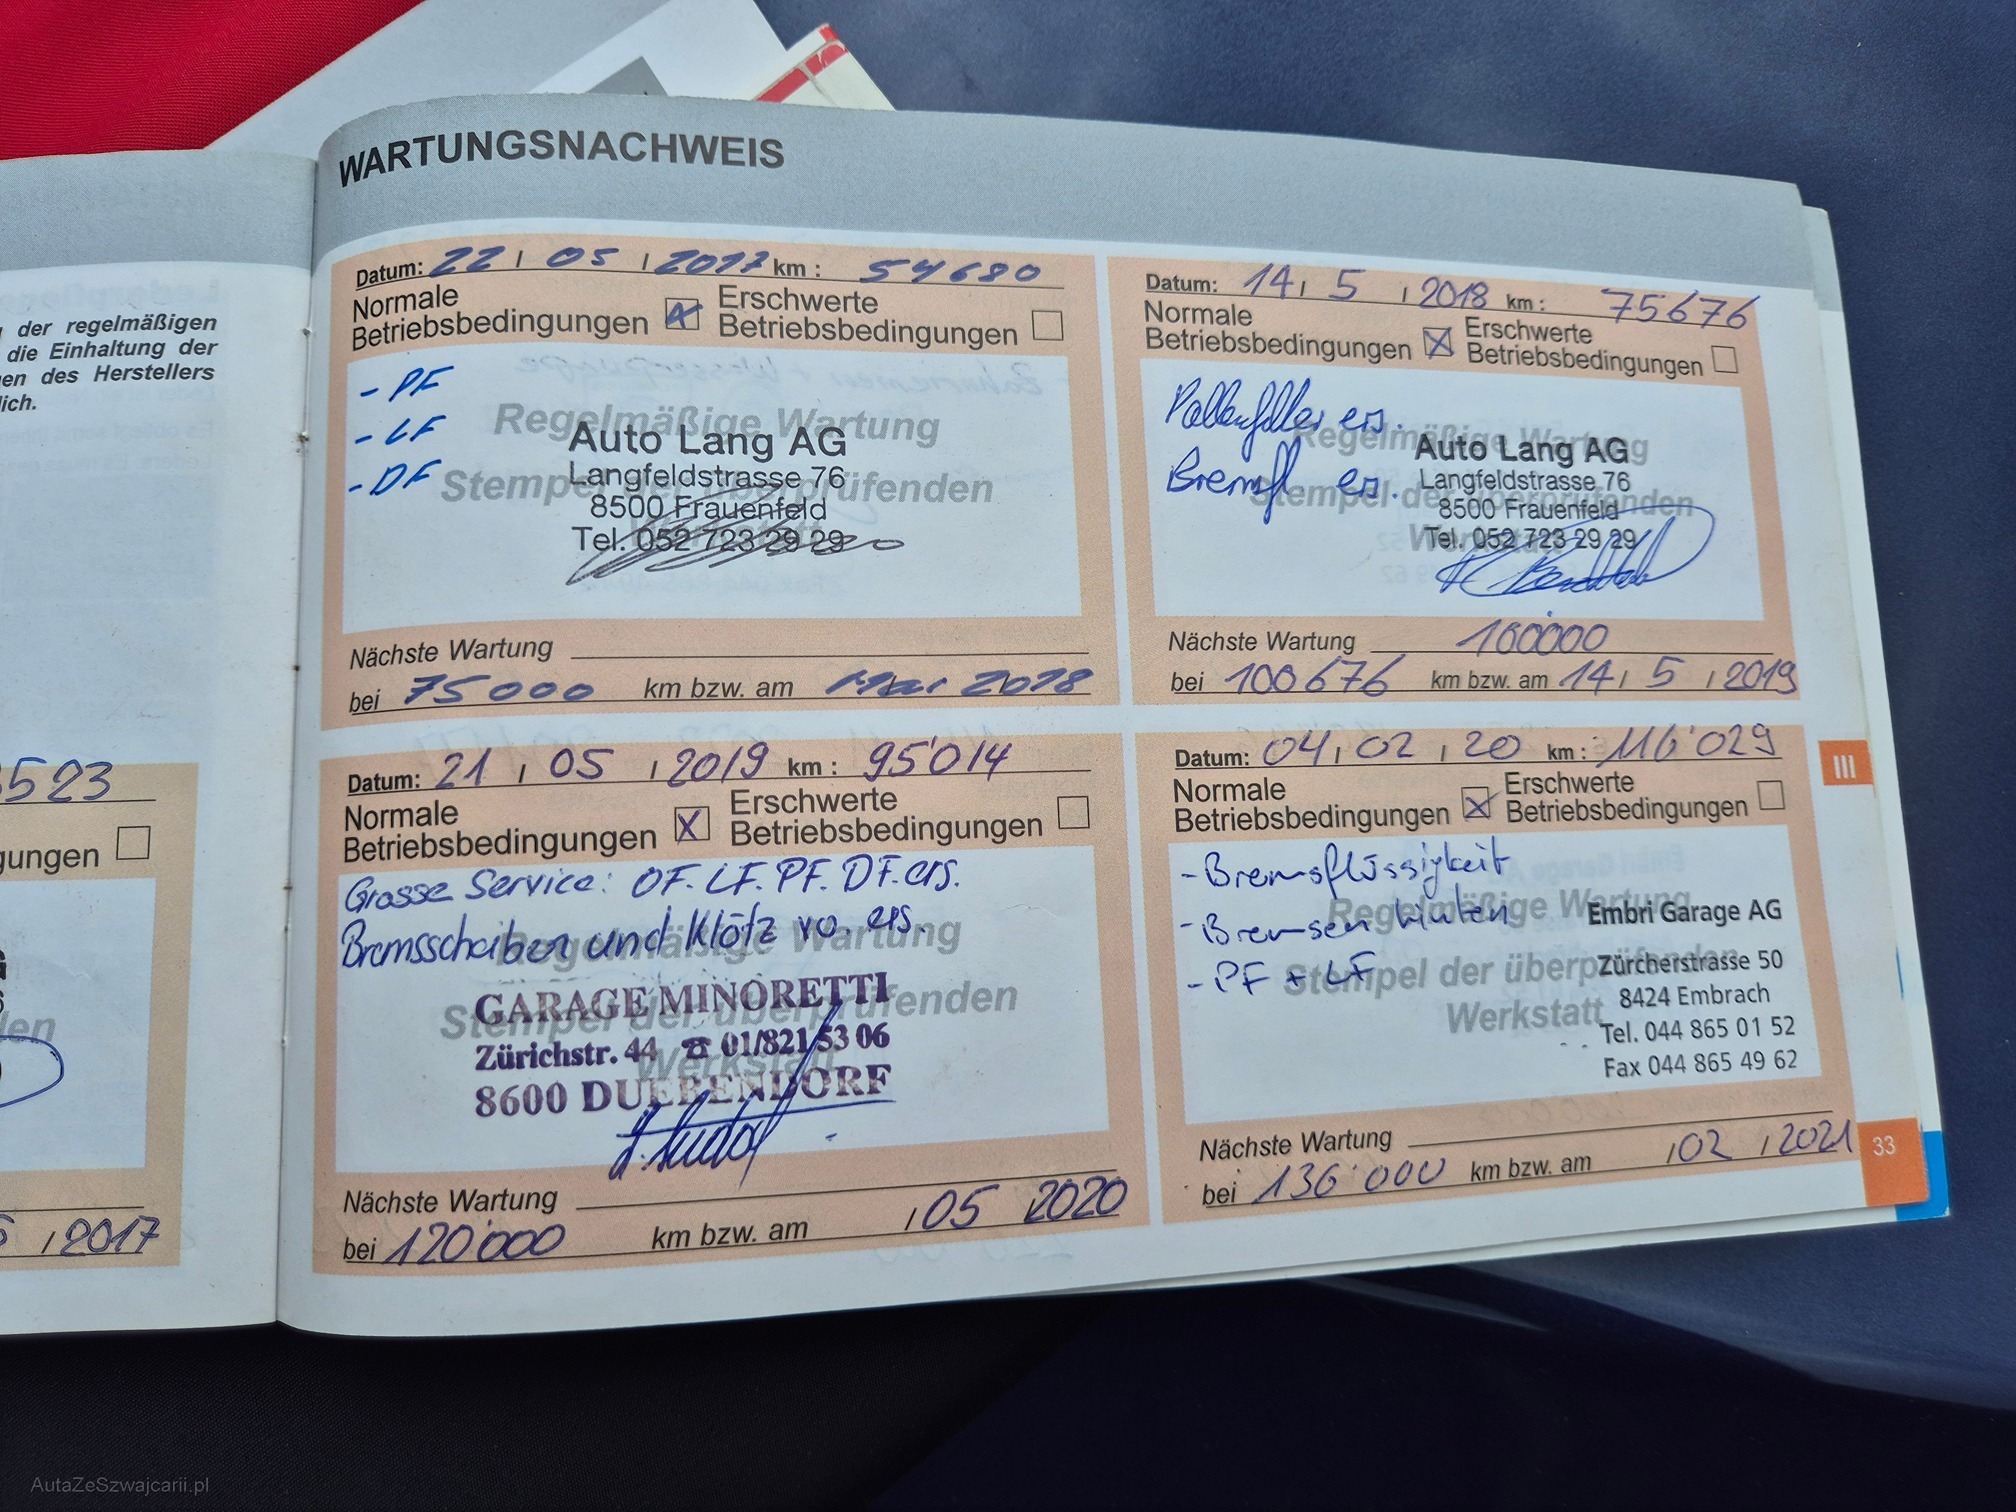 WARTUNGSNACHWEIS
der regelmäßigen
die Einhaltung der
en des Herstellers
lich.
523
gungen
2017
Datum: 22 / 05 / 2017 km : 54680
Normale Betriebsbedingungen
Erschwerte Betriebsbedingungen
- PF
- LF
- DF
Regelmäßige Wartung
Stempel der überprüfenden
Werkstatt
Auto Lang AG
Langfeldstrasse 76
8500 Frauenfeld
Tel. 052 723 29 29
Nächste Wartung
bei 75000 km bzw. am Mai 2018
Datum: 14 / 5 / 2018 km : 75676
Normale Betriebsbedingungen
Erschwerte Betriebsbedingungen
Pollenfilter ers.
Bremsfl. ers.
Regelmäßige Wartung
Stempel der überprüfenden
Werkstatt
Auto Lang AG
Langfeldstrasse 76
8500 Frauenfeld
Tel. 052 723 29 29
Nächste Wartung
bei 100676 km bzw. am 14 / 5 / 2019
Datum: 21 / 05 / 2019 km : 95'014
Normale Betriebsbedingungen
Erschwerte Betriebsbedingungen
Grosse Service: OF. LF. PF. DF. ers.
Bremsscheiben und Klötz vo. ers.
Regelmäßige Wartung
Stempel der überprüfenden
Werkstatt
GARAGE MINORETTI
Zürichstr. 44 ☎ 01/821 53 06
8600 DUEBENDORF
Nächste Wartung
bei 120'000 km bzw. am / 05 / 2020
Datum: 04 / 02 / 20 km : 116'029
Normale Betriebsbedingungen
Erschwerte Betriebsbedingungen
- Bremsflüssigkeit
- Bremsen hinten
- PF + LF
Regelmäßige Wartung
Stempel der überprüfenden
Werkstatt
Embri Garage AG
Zürcherstrasse 50
8424 Embrach
Tel. 044 865 01 52
Fax 044 865 49 62
Nächste Wartung
bei 136'000 km bzw. am / 02 / 2021
III
33
AutaZeSzwajcarii.pl